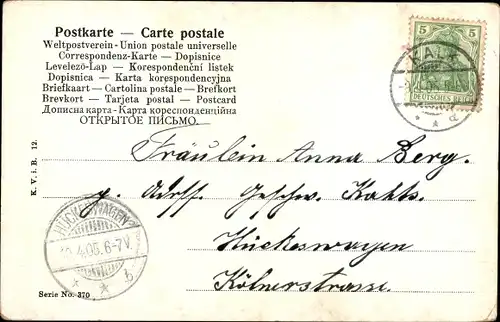 Postkarte — Carte postale
Weltpostverein - Union postale universelle
Correspondenz-Karte — Dopisnice
Levelező-Lap — Korespondenční listek
Dopisnica — Karta korespondencyjna
Briefkaart — Cartolina postale — Brefkort
Brevkort — Tarjeta postal — Postcard
Дописна карта - Карта кореспонденційна
ОТКРЫТОЕ ПИСЬМО.
5 5
DEUTSCHES REICH
KALK
d
K. V. i. B. 12.
Fräulein Anna Berg.
p. Adrss. Geschw.
Hückeswagen
Kölnerstrasse.
HÜCKESWAGEN
.4.05.6-7V.
b
Serie No. 370